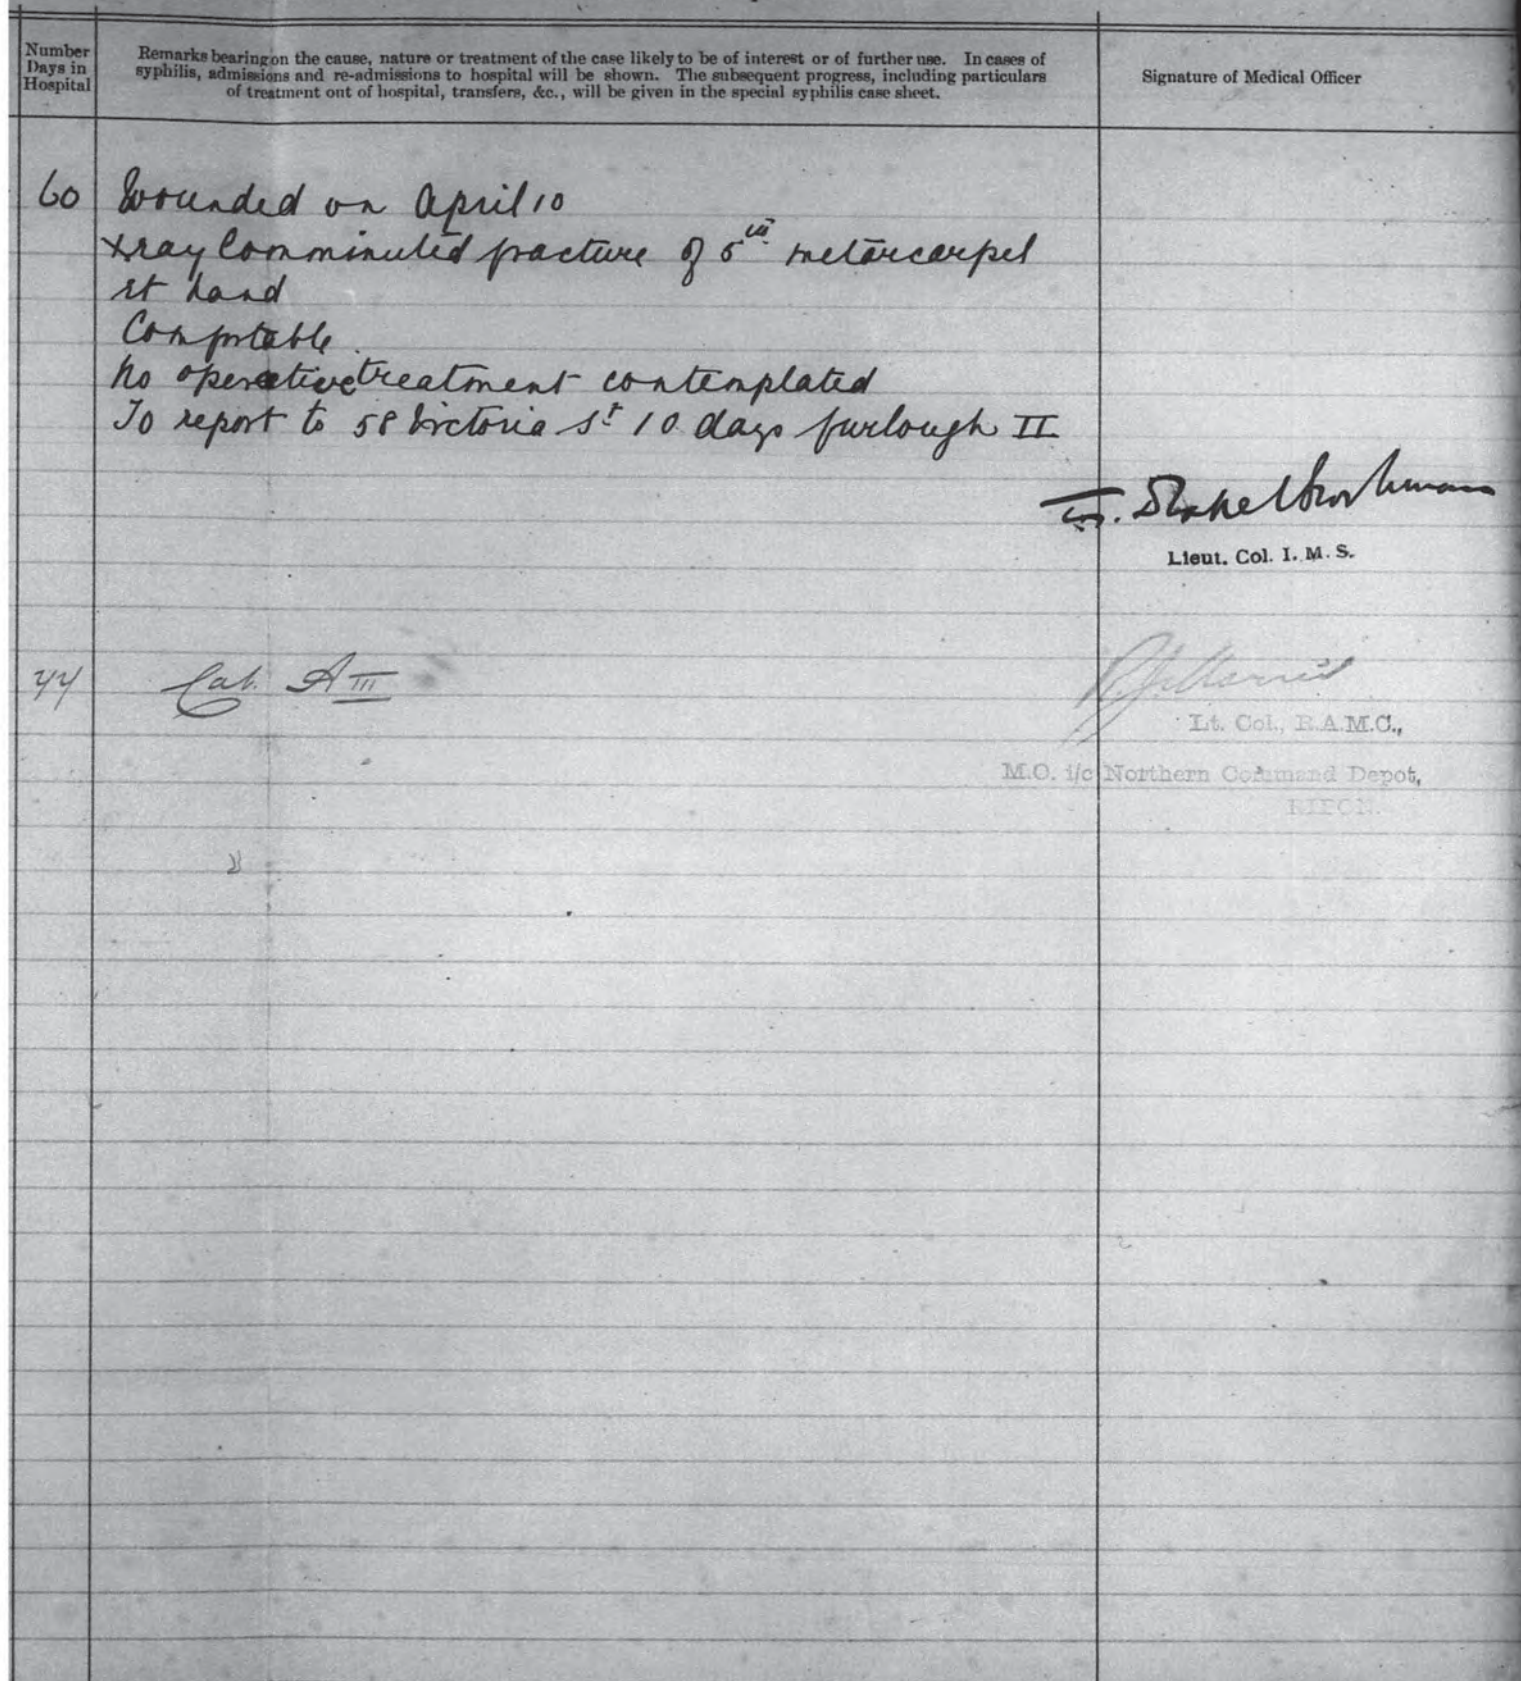 Number
Days in
Hospital
Remarks bearing on the cause, nature or treatment of the case likely to be of interest or of further use. In cases of
syphilis, admissions and re-admissions to hospital will be shown. The subsequent progress, including particulars
of treatment out of hospital, transfers, &c., will be given in the special syphilis case sheet.
Signature of Medical Officer
60 Wounded on April 10
Xray Comminuted fracture of 5th metarcarpel
rt hand
Comfortable.
No operative treatment contemplated
To report to 58 Victoria St 10 days furlough II
Lieut. Col. I. M. S.
44 Cat. A III
Lt. Col., R.A.M.C.,
M.O. i/c Northern Command Depot,
RIPON.